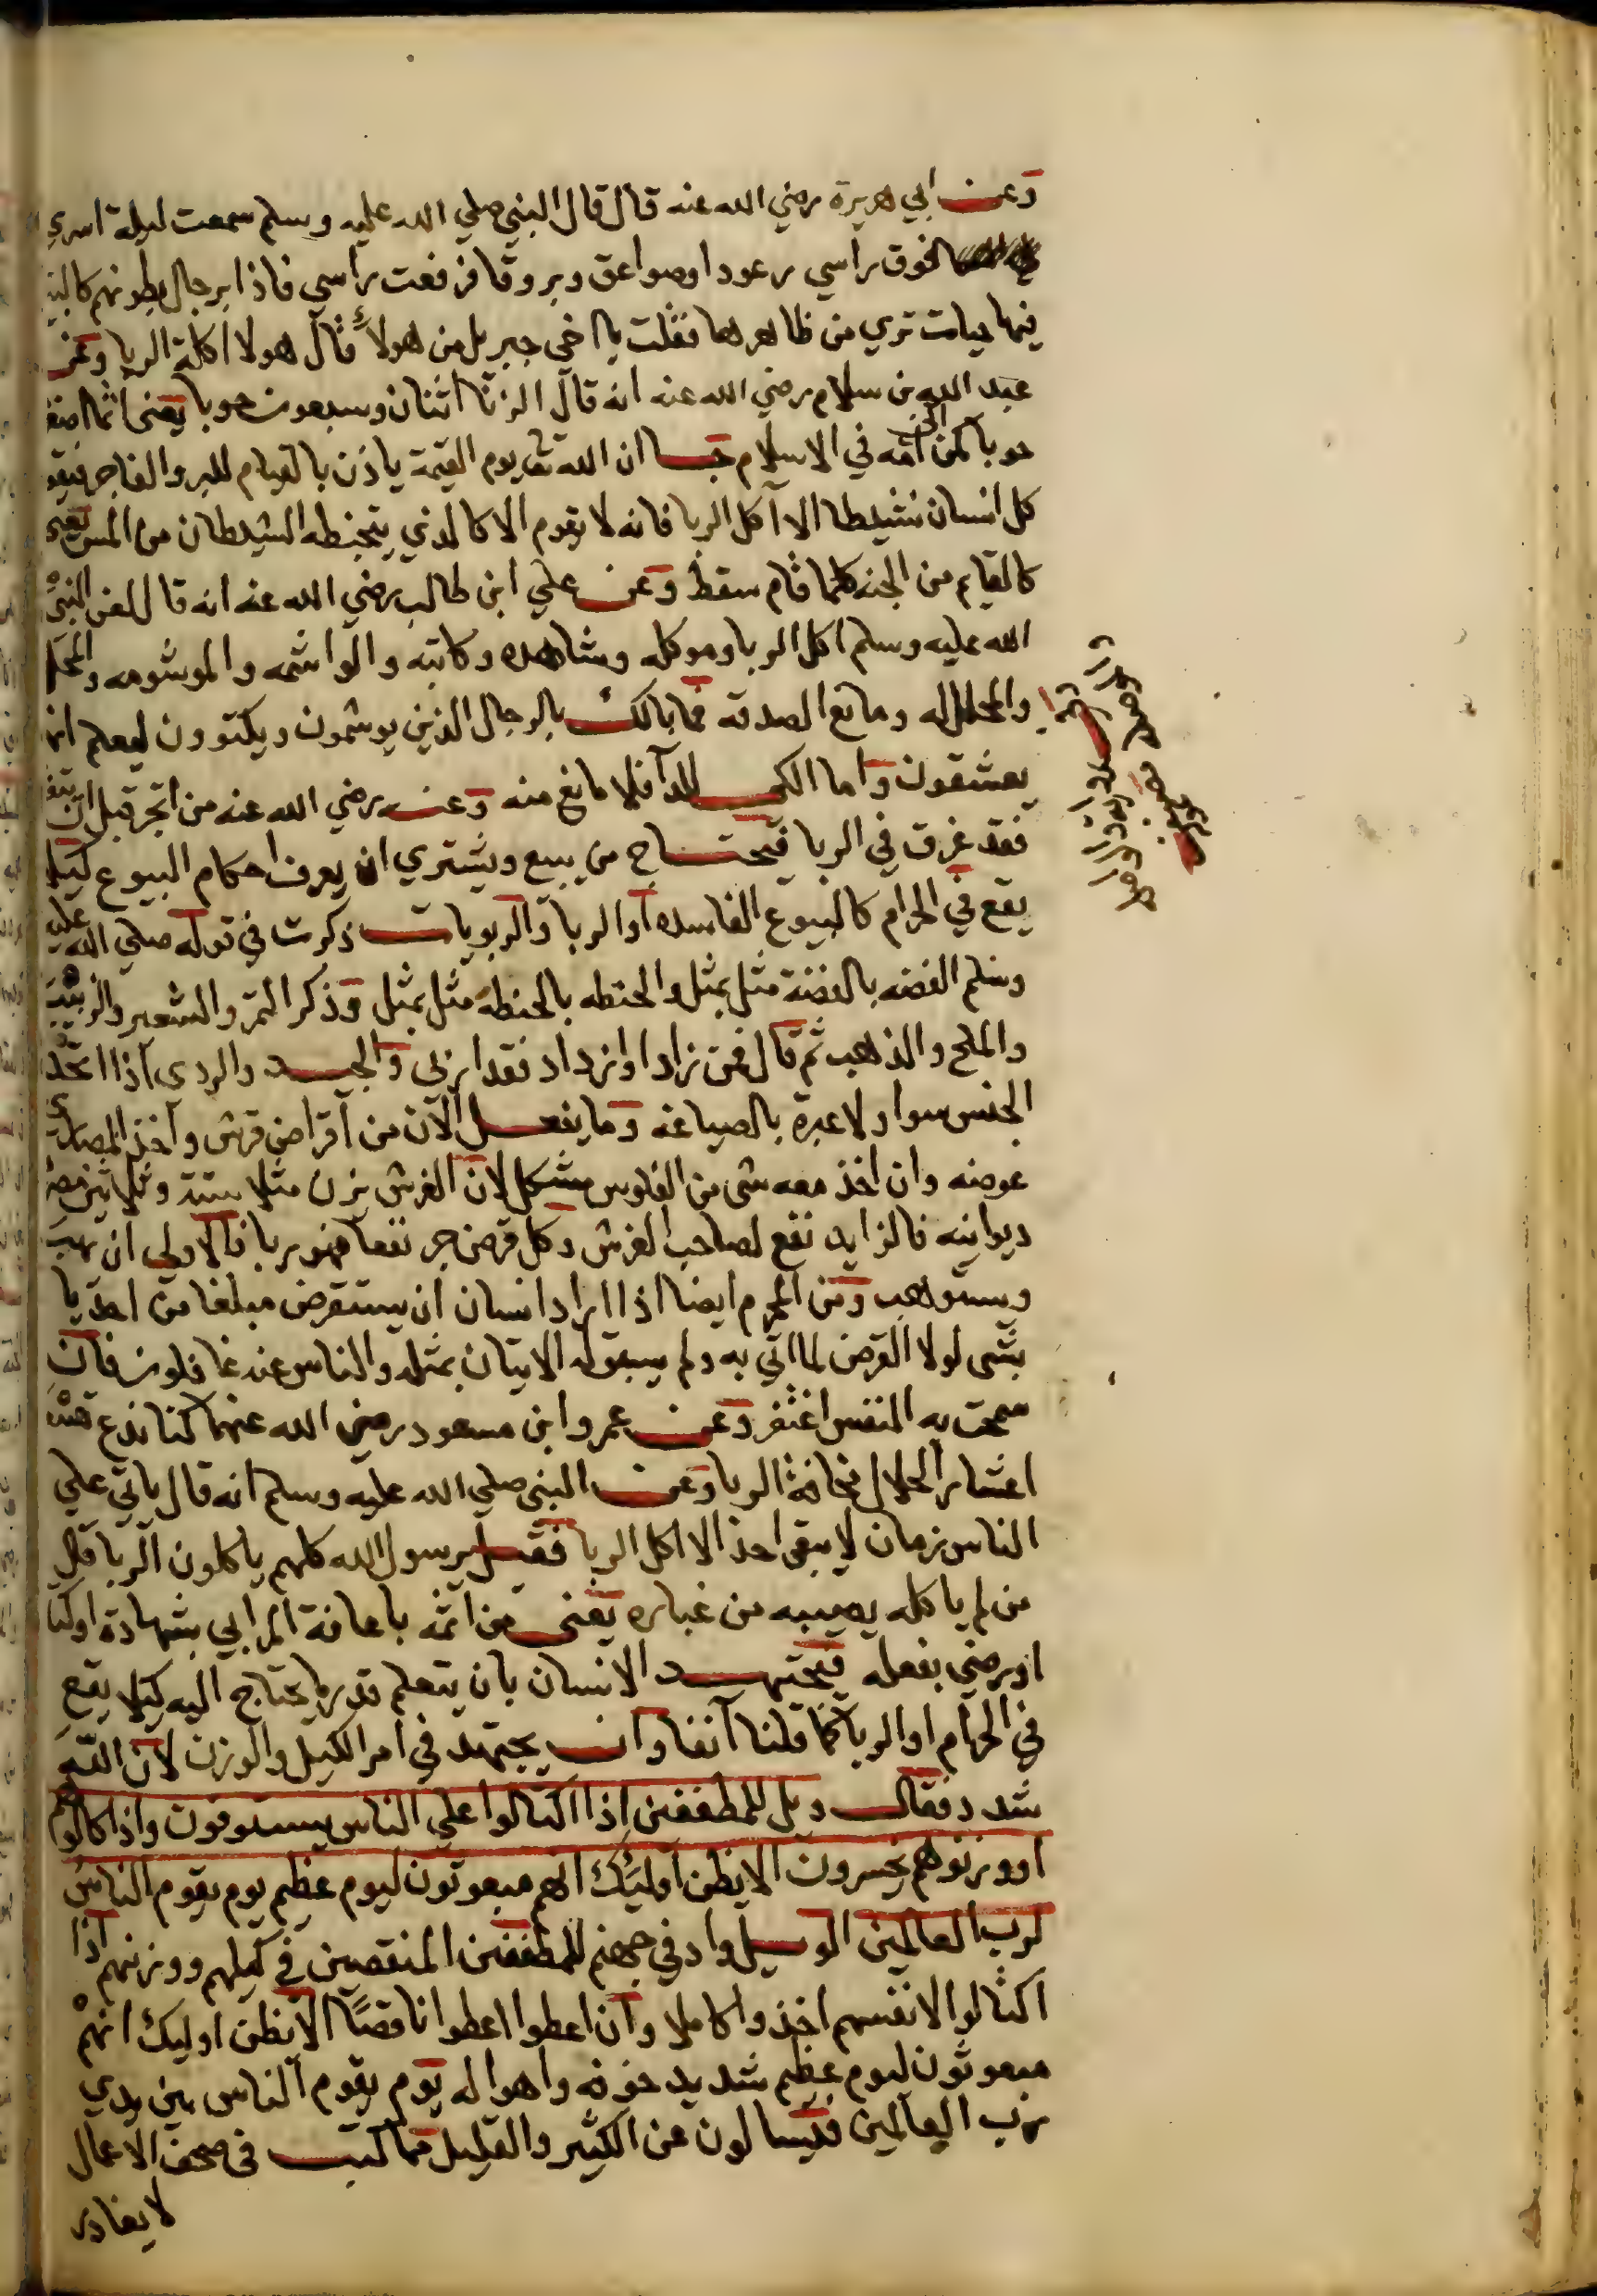 وعن ابي هريرة رضي الله عنه قال قال النبي صلي الله عليه وسلم سمعت ليلة اسري
فوق راسي رعودا وصواعق وبروقا فرفعت راسي فاذا برجال بطونهم كالبيت
فيها حيات تري من ظاهرها فقلت يا اخي جبريل من هولاء قال هولا اكلة الربا وعن
عبد الله بن سلام رضي الله عنه انه قال الربا اثنان وسبعون حوبا يعني اثما اصغر
حوبا كمن اتي امه في الاسلام ان الله تعالى يوم القيمة ياذن بالقيام للبر والفاجر فيقوم
كل انسان نشيطا الا آكل الربا فانه لا يقوم الا كالذي يتخبطه الشيطان من المس يعني
كالقايم من الجنه كلما قام سقط وعن علي ابن طالب رضي الله عنه انه قال لعن النبي
الله عليه وسلم اكل الربا وموكله وشاهده وكاتبه والواشمه والموشومه والمحلل
والمحلل له ومانع الصدقة فما بالك بالرجال الذين يوشمون ويكتوون ليعلم انهم
يعشقون واما الكي للدآ فلا مانع منه وعنه رضي الله عنه من اتجر قبل ان يتفقه
فقد غرق في الربا فيحتاج من يبيع ويشتري ان يعرف احكام البيوع ليلا
يقع في الحرام كالبيوع الفاسده او الربا والربويات ذكرت في قوله صلي الله عليه
وسلم الفضه بالفضة مثل بمثل والحنطه بالحنطه مثل بمثل وذكر التمر والشعير والزبيب
والملح والذهب ثم قال فمن زاد او ازداد فقد اربي والجيد والردي اذا اتحد
الجنس سوا ولا عبرة بالصياغه وما يفعل الآن من اقراض قرش واخذ المصاري
عوضه وان اخذ معه شي من الفلوس مشكل لان القرش يزن مثلا ستة وثلاثين فضة
ديوانيه فالزايد نفع لصاحب القرش وكل قرض جر نفعا فهو ربا فالاولي ان يهب
ويستوهب ومن المحرم ايضا اذا اراد انسان ان يستقرض مبلغا من احد ياتي
بشي لولا القرض لما اتي به ولم يسبق له الاتيان بمثله والناس عنه غافلون فان
سمحت به النفس اغتفر وعن عمر وابن مسعود رضي الله عنهما كنا ندع تسعة
اعشار الحلال مخافة الربا وعن النبي صلي الله عليه وسلم انه قال ياتي علي
الناس زمان لا يبقي احد الا اكل الربا فقيل يرسول الله كلهم ياكلون الربا قال
من لم ياكله يصيبه من غباره يعني من اثمه باعانة المرابي بشهادة او كتابة
او رضي بفعله فيجتهد الانسان بان يتعلم قدر ما يحتاج اليه كيلا يقع
في الحرام او الربا كما قلنا آنفا وان يجتهد في امر الكيل والوزن لان الله
شدد فقال ويل للمطففين اذا اكتالوا علي الناس يستوفون واذا كالوهم
او وزنوهم يخسرون الا يظن اوليك انهم مبعوثون ليوم عظيم يوم يقوم الناس
لرب العالمين الويل واد في جهنم للمطففين المنقصين في كيلهم ووزنهم اذا
اكتالوا لانفسهم اخذوا كاملا وان اعطوا اعطوا ناقصًا الا يظن اوليك انهم
مبعوثون ليوم عظيم شديد خوفه واهواله يوم يقوم الناس بين يدي
رب العالمين فيسالون عن الكثير والقليل مما كتب في صحف الاعمال
لا يغادر